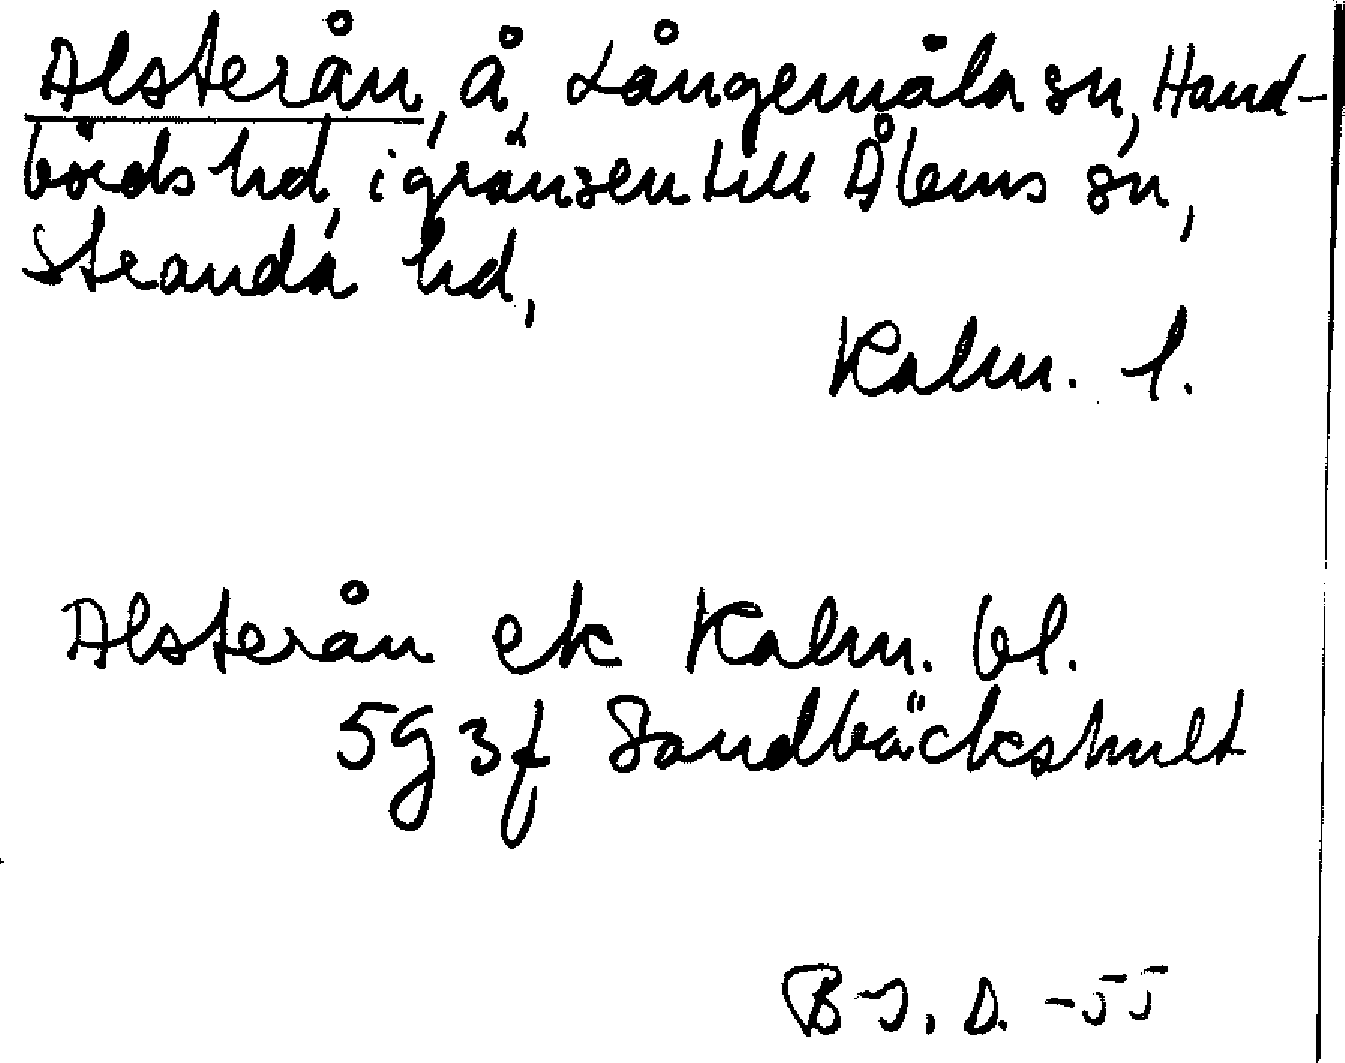 Alsterån, å, Långemåla sn, Hand-
börds hd, i gränsen till Ålems sn,
Stranda hd,
Kalm. l.
Alsterån ek Kalm. bl.
5G3f Sandbäckshult
B-J. D. -55